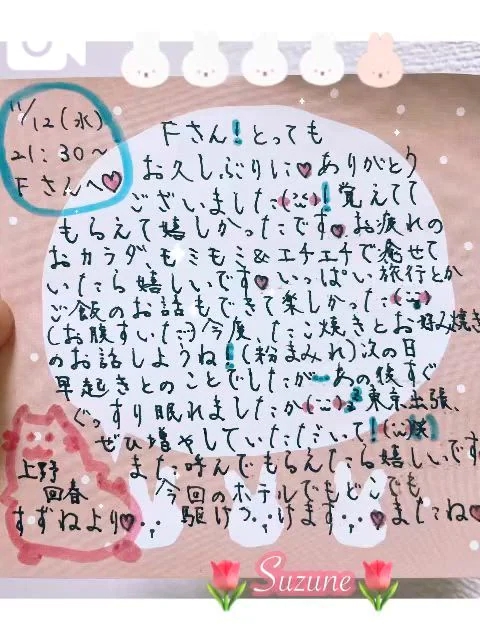 11/12(水)
21:30~
Fさんへ♥
Fさん!とっても
お久しぶりに♥ありがとう
ございました(¨̮)!覚えてて
もらえて嬉しかったです♥お疲れの
おカラダ、モミモミ&エチエチで癒せて
いたら嬉しいです♥いっぱい旅行とか
ご飯のお話もできて楽しかった(¨̮)
(お腹すいた¨̮)今度、たこ焼きとお好み焼き
のお話しようね!(粉まみれ)次の日
早起きとのことでしたが…あの後すぐ
ぐっすり眠れましたか(¨̮)?東京出張、
ぜひ増やしていただいて!(¨̮)(笑)
また呼んでもらえたら嬉しいです
今回のホテルでもどこでも
駆けつけます♥またね♥
上野
回春
すずねより♥
Suzune